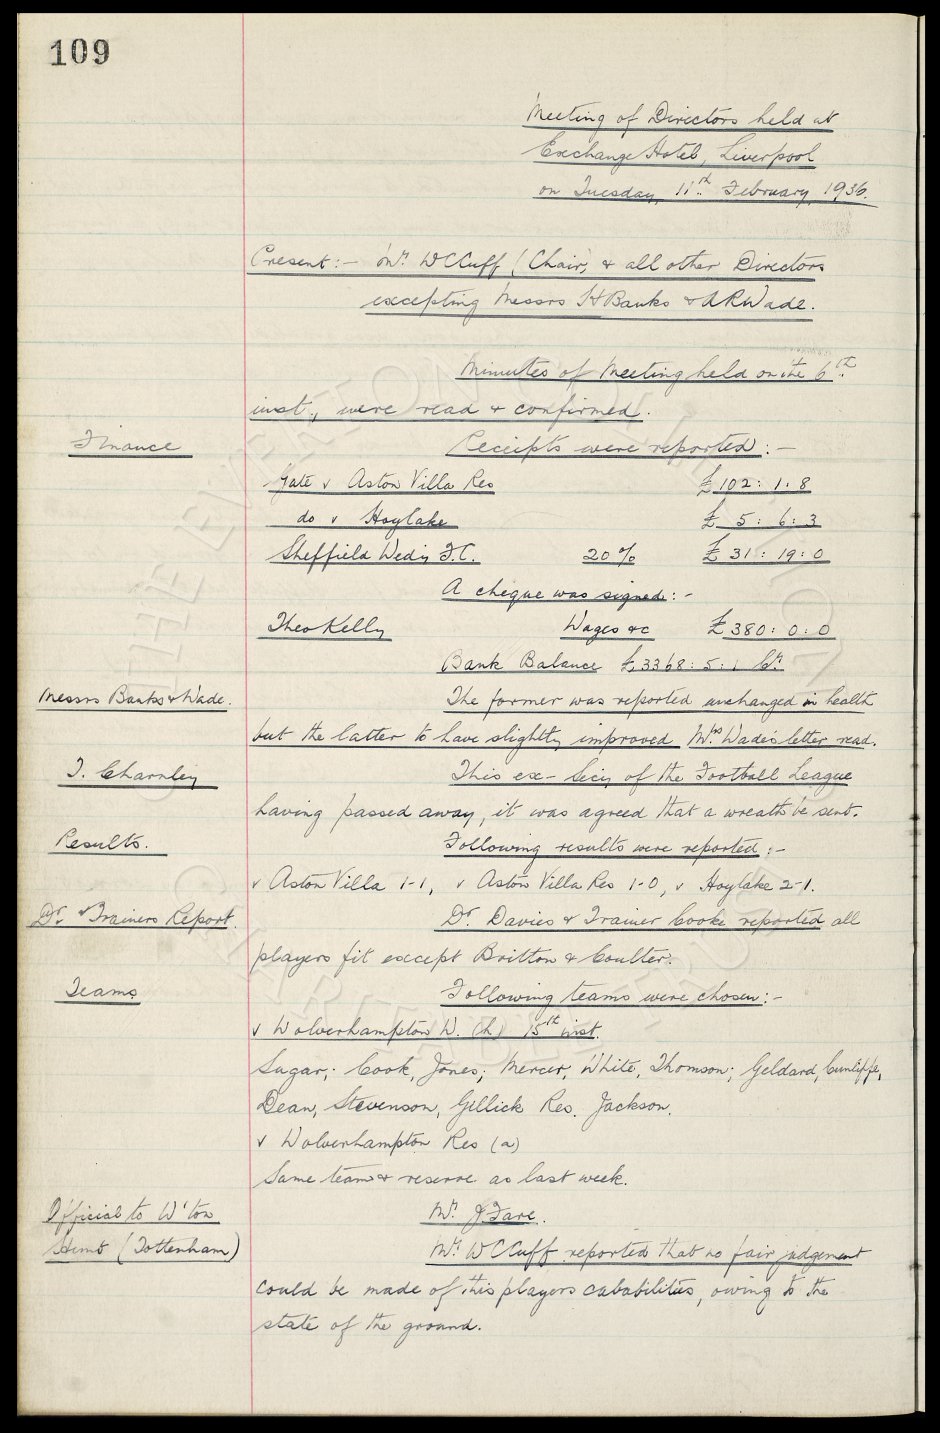 109
Meeting of Directors held at
Exchange Hotel, Liverpool
on Tuesday, 11th February, 1936.
Present:- Mr. W C Cuff (Chair) & all other Directors
excepting Messrs H Banks & A R Wade.
Minutes of Meeting held on the 6th
inst., were read & confirmed.
Finance Receipts were reported:-
Gate v Aston Villa Res £102: 1: 8
do v Hoylake £ 5: 6: 3
Sheffield Wed'y F.C. 20% £ 31: 19: 0
A cheque was signed:-
Theo Kelly Wages &c £380: 0: 0
Bank Balance £3368: 5: 1 Cr.
Messrs Banks & Wade. The former was reported unchanged in health
but the latter to have slightly improved Mrs. Wade's letter read.
T. Charnley This ex-Secy of the Football League
having passed away, it was agreed that a wreath be sent.
Results. Following results were reported:-
v Aston Villa 1-1, v Aston Villa Res 1-0, v Hoylake 2-1.
Dr. & Trainers Report. Dr. Davies & Trainer Cooke reported all
players fit except Britton & Coulter.
Teams Following teams were chosen:-
v Wolverhampton W. (h) 15th inst.
Sagar; Cook, Jones; Mercer, White, Thomson; Geldard, Cunliffe,
Dean, Stevenson, Gillick Res. Jackson.
v Wolverhampton Res (a)
Same team & reserve as last week.
Official to W'ton Mr. J. Fare.
Hunt (Tottenham) Mr. W C Cuff reported that no fair judgement
could be made of this players cababilities, owing to the
state of the ground.
THE EVERTON COLLECTION
CHARITABLE TRUST